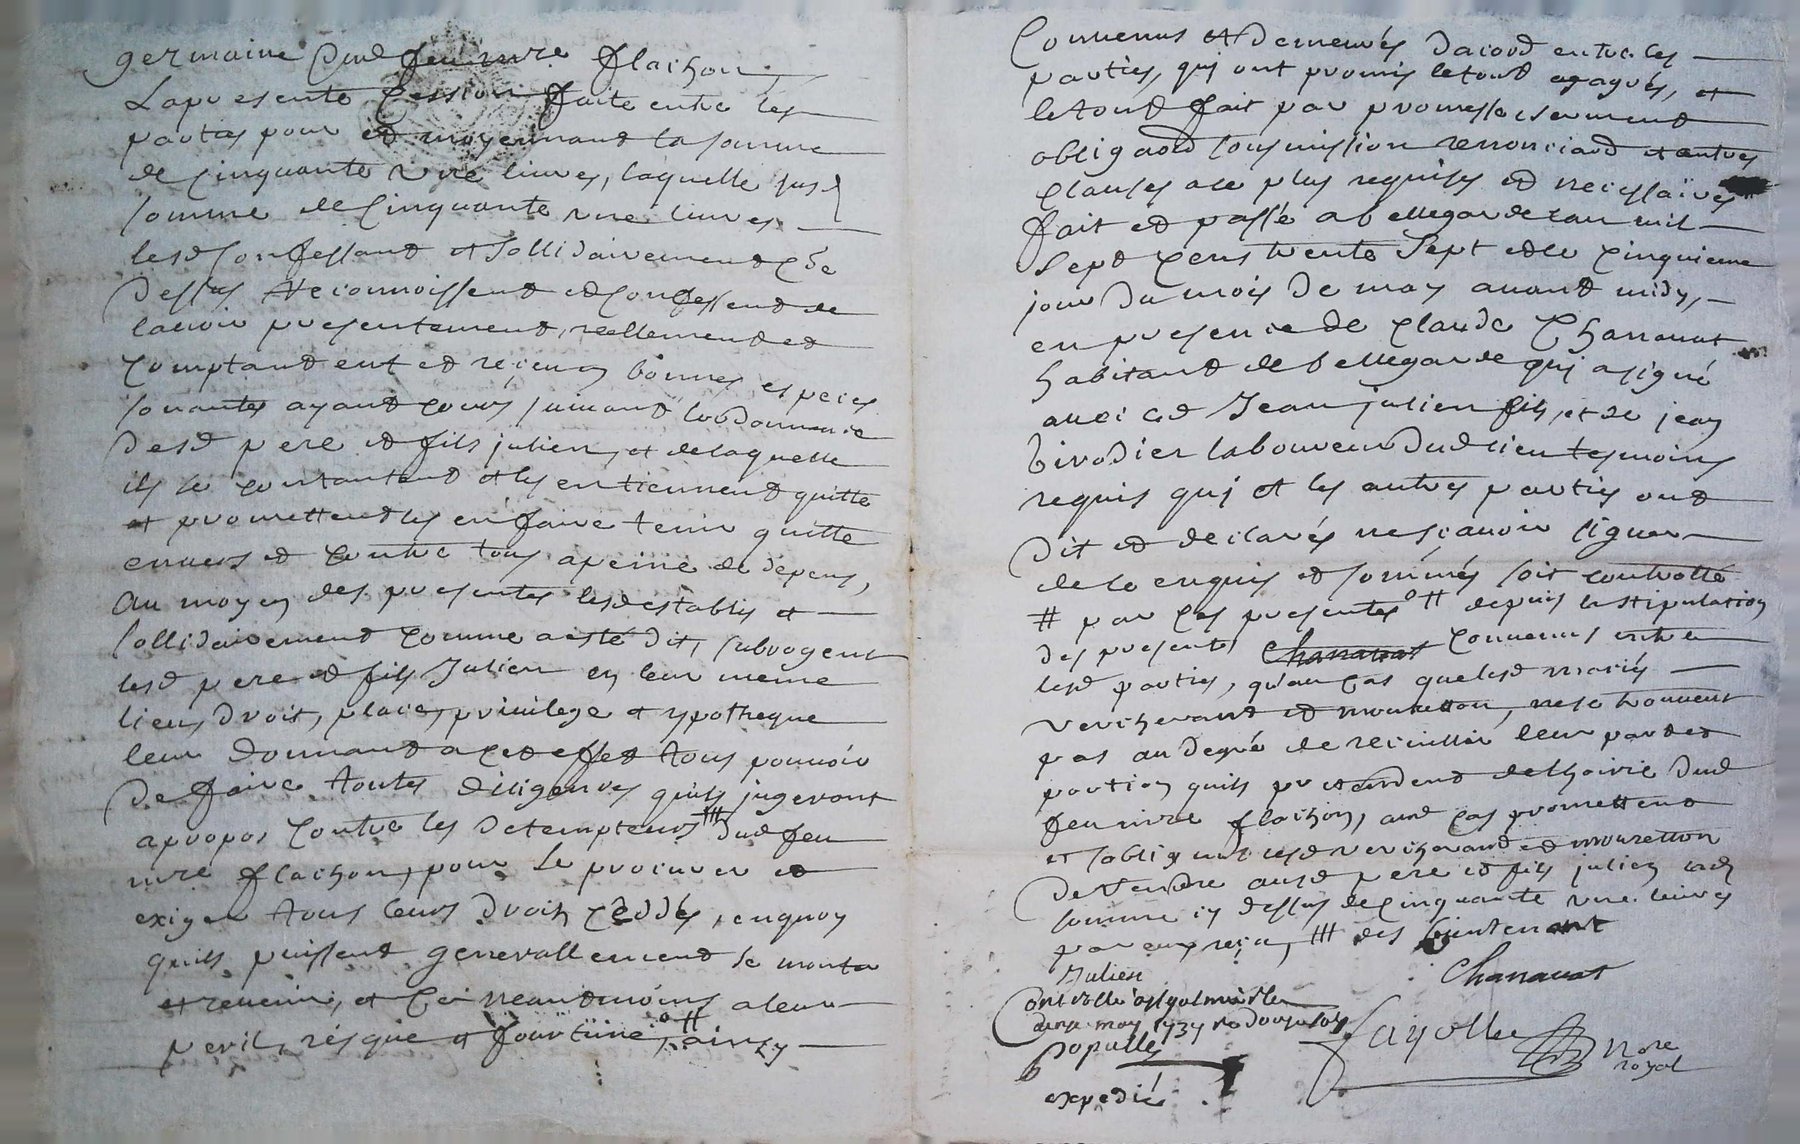 germaine dud feu mre flachon,
La presente Cession faite entre les
parties pour et moyennant la somme
de Cinquante une livres, laquelle susd
somme de Cinquante une livres
lesd Confessant et sollidairement
dessus Reconnoissent et Confessent de
lavoir presentement, reellement et
Comptant eut et reçeu en bonnes especes
sonantes ayant cours suivant lordonnance
desd pere et fils julien, et de laquelle
ils se contantent et les entiennent quitte
et promettent les en faire tenir quitte
envers et contre tous apeine de depens,
au moyen des presentes lesd establis et
sollidairement comme a esté dit, subrogent
lesd pere et fils Julien en leur meme
lieu, droit, place, privilege et ypotheque
leur donnant a Cet effet tous pouvoir
de faire toutes diligences quils jugeront
apropos Contre les detempteurs ### dud feu
mre flachon, pour se procurer et
exiger tous leurs droits Cèddés, enquoy
quils puissent generallement se monter
et revenir, et Ce neantmoins a leur
peril, résque et fourtune, o# ainsy
Convenus et demeurés dacord entre les
parties, qui ont promis le tout agagrés, et
le tout fait par promesse serment
obligaõn soumission renonciaõn et autres
Clauses a ce plus requises et necessaires
fait et passé a bellegarde lan mil
sept Cens trente sept et le Cinquieme
jour du mois de may avant midy,
en presence de Claude Chanavat
habitant de bellegarde qui a signé
avec led Jean julien fils, et de jean
Birodier laboureur dud lieu tesmoins
requis qui et les autres parties ont
dit et declarés ne sçavoir signer
de ce enquis et sommés soit controllé
# par Ces presentes o# depuis la stipulation
des presentes Chanavat Convenus entre
lesd parties, qu'au Cas que lesd mariés
Vercherand et mouretton, ne se trouvent
pas au degré de recuillir leur part et
portion quils pretendent de lhoirie dud
feu mre flachon, aud Cas promettent
et sobligent lesd vercherand et mouretton
de rendre ausd pere et fils julien lad
somme cy dessus de Cinquante une livres
par eux reçu, ### des bientenant
Julien
Chanavat
Controllé
may 1737
Fayolle
Nore
royal
Popull
expedié